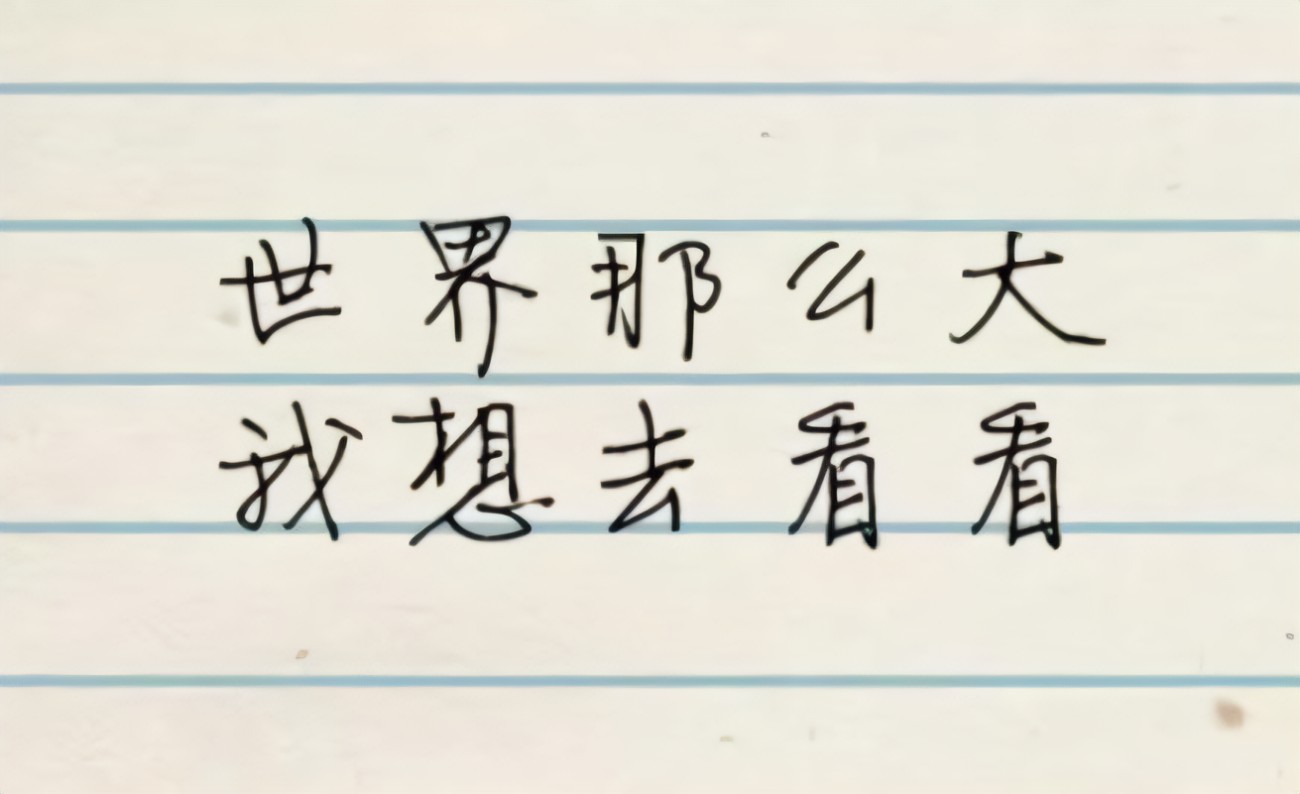 世界那么大
我想去看看